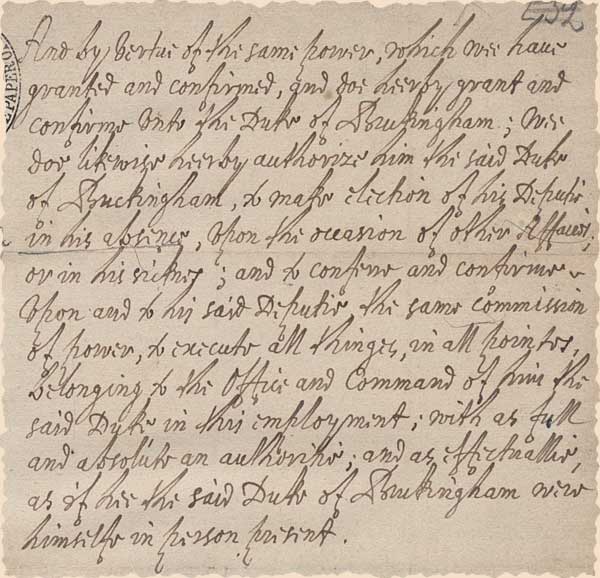 532
PAPER O
And by Vertue of the same power, which wee have
granted and confirmed, and doe heerby grant and
confirme Unto the Duke of Buckingham; Wee
doe likewise heerby authorize him the said Duke
of Buckingham, to make election of his Deputie
in his absence, Upon the occasion of other Affaires;
or in his sicknes; and to conferre and confirme
Upon and to his said Deputie the same Commission
of power, to execute all thinges, in all pointes,
belonging to the Office and Command of him the
said Duke in this employment; with as full
and absolute an authoritie; and as effectuallie,
as if hee the said Duke of Buckingham were
himselfe in person present.